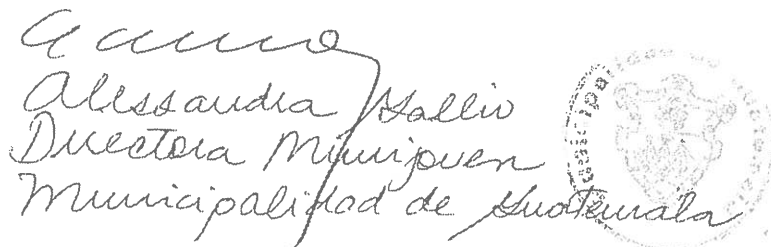 Alessandra Gallio
Directora Munijoven
Municipalidad de Guatemala